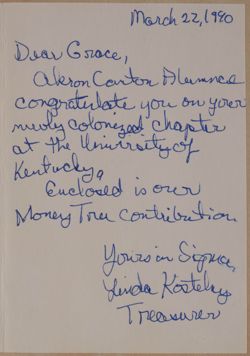 March 22, 1990
Dear Grace,
Akron Canton Alumnae
congratulate you on your
newly colonized chapter
at the University of
Kentucky.
Enclosed is our
Money Tree contribution.
Yours in Sigma,
Linda Kostelny
Treasurer